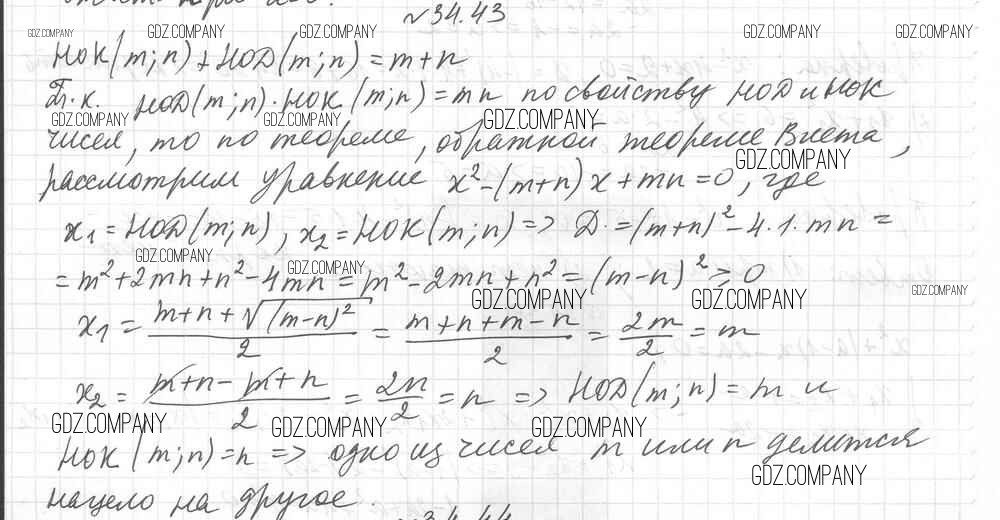 №34.43
GDZ.COMPANY GDZ.COMPANY GDZ.COMPANY GDZ.COMPANY GDZ.COMPANY
НОК(m;n)+НОД(m;n)=m+n
Т.к. НОД(m;n)·НОК(m;n)=mn по свойству НОД и НОК
GDZ.COMPANY GDZ.COMPANY GDZ.COMPANY
чисел, то по теореме, обратной теореме Виета,
GDZ.COMPANY
рассмотрим уравнение x²-(m+n)x+mn=0, где
x₁=НОД(m;n), x₂=НОК(m;n) => D=(m+n)²-4·1·mn=
GDZ.COMPANY GDZ.COMPANY
=m²+2mn+n²-4mn=m²-2mn+n²=(m-n)²≥0
GDZ.COMPANY GDZ.COMPANY GDZ.COMPANY
x₁=(m+n+√(m-n)²)/2=(m+n+m-n)/2=2m/2=m
x₂=(m+n-m+n)/2=2n/2=n => НОД(m;n)=m и
GDZ.COMPANY GDZ.COMPANY GDZ.COMPANY
НОК(m;n)=n => одно из чисел m или n делится
GDZ.COMPANY
нацело на другое.
№34.44